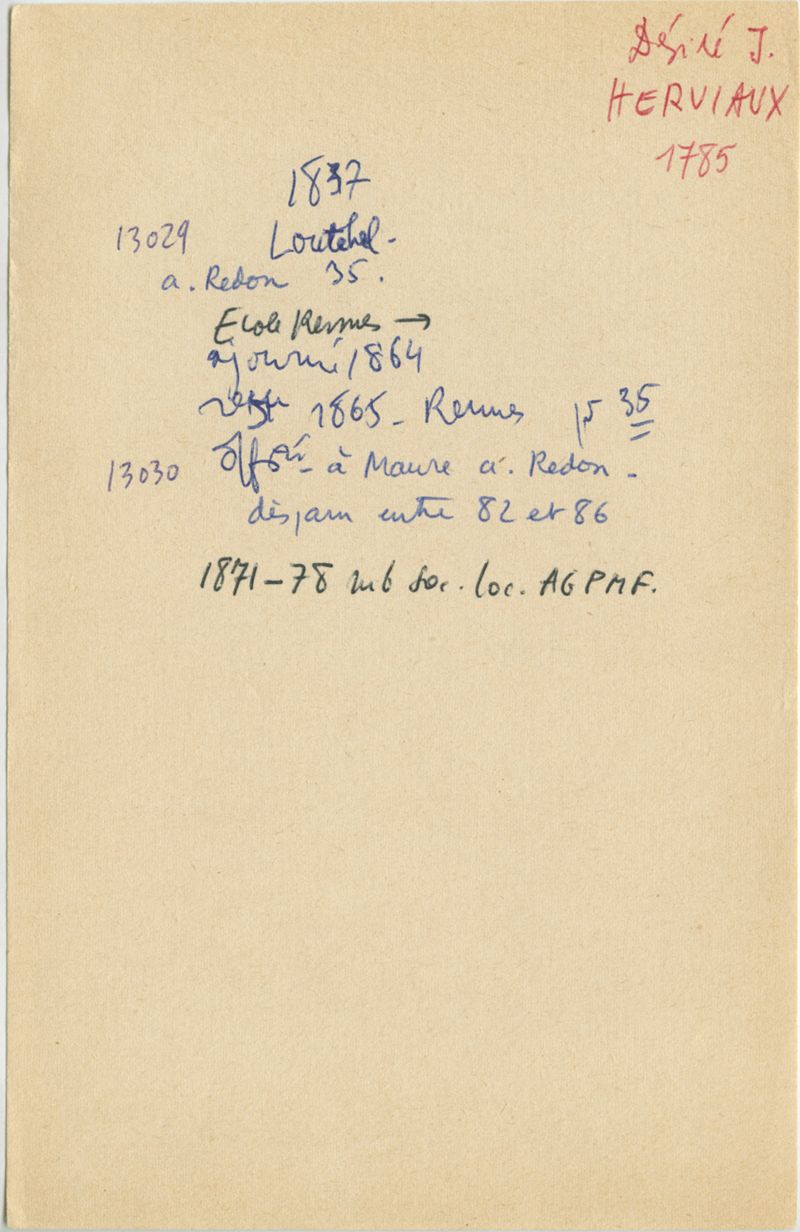 Désiré J.
HERVIAUX
1785
1837
13029 Loutehel -
a. Redon 35.
Ecole Rennes →
ajourné 1864
1865 - Rennes pr 35
13030 à Maure a. Redon -
disparu entre 82 et 86
1871-78 mb soc. loc. AGPMF.